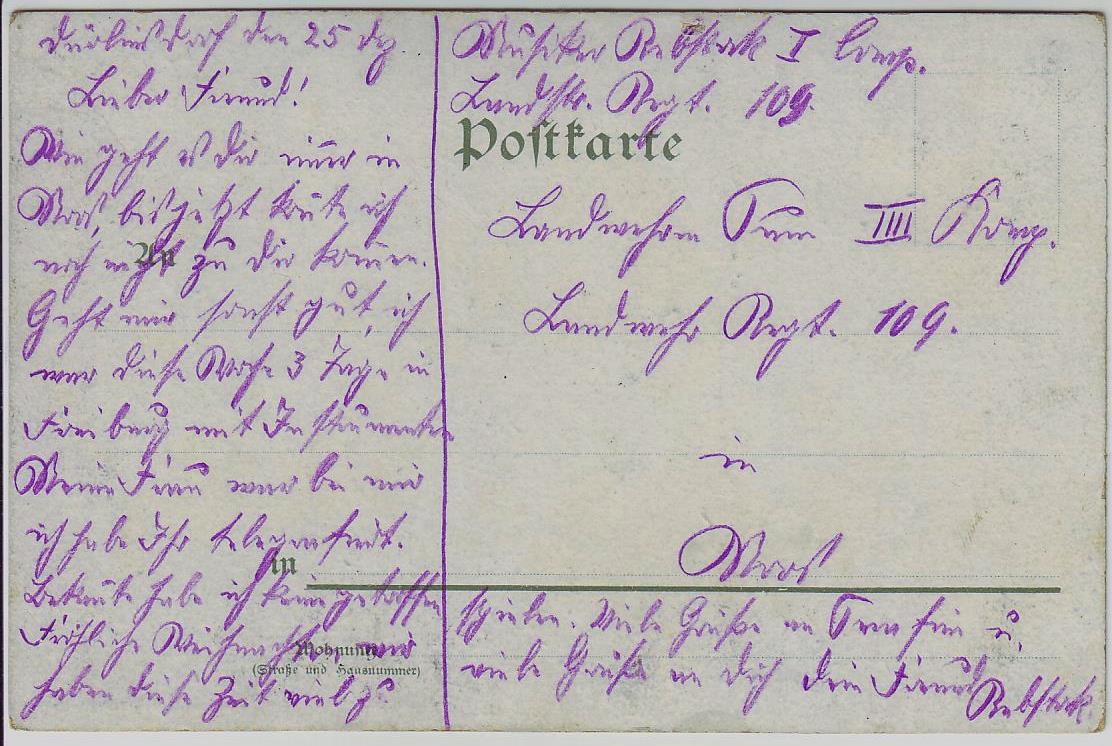 Dürlinsdorf den 25 Dez.
Lieber Freund!
Wie geht es dir immer in
Moos, bis jetzt konte ich
noch nicht zu dir kommen.
Geht mir sonst gut, ich
war diese Woche 3 Tage in
Freiburg mit Instrumenten
Meine Frau war bei mir
ich habe Ihr telegrafirt.
Bekante habe ich keine getroffen
Fröhliche Weihnachten, wir
haben diese Zeit viel zu
Musiker Rebstock I Comp.
Landstr. Regt. 109.
Postkarte
An
Landwehrm III Komp.
Landwehr Regt. 109.
in
Moos
in
Wohnung
(Straße und Hausnummer)
spielen. Viele Grüße an u.
viele Grüße an Dich dein Freund
Rebstock.